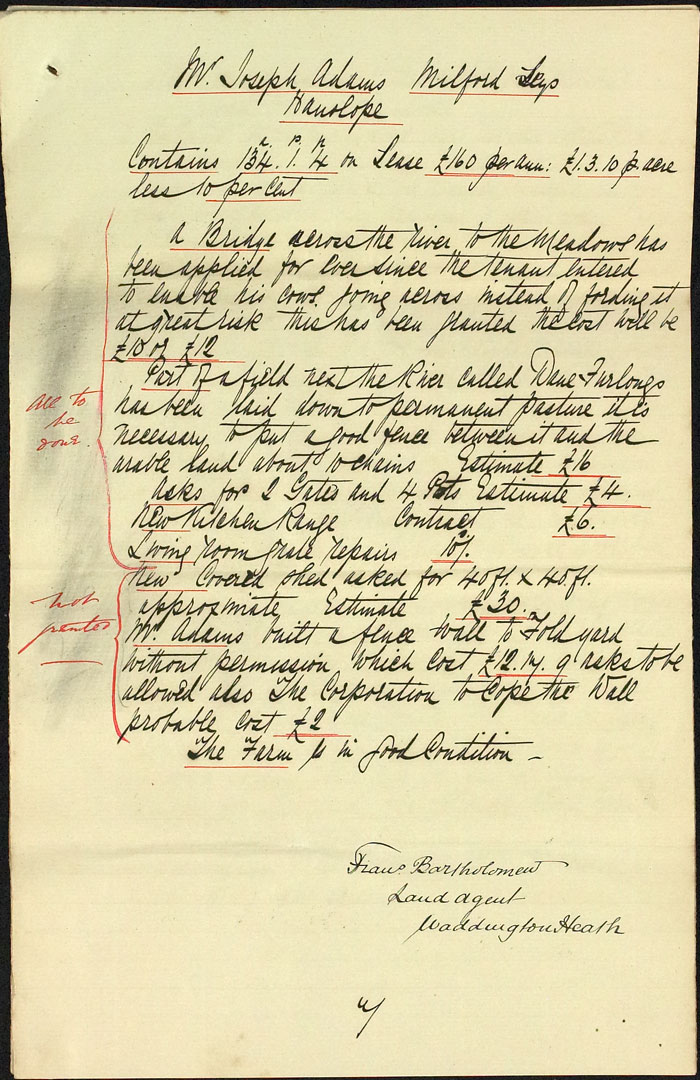 Mr. Joseph Adams Milford Leys
Hanslope
Contains 134 a. 1 r. 4 on Lease £160 per ann: £1.3.10 p. acre
less 10 per Cent
a Bridge across the river to the Meadows has
been applied for ever since the tenant entered
to enable his cows going across instead of fording it
at great risk this has been granted the cost will be
£10 or £12
Part of a field next the River called Dane Furlongs
has been laid down to permanent pasture it is
necessary to put a good fence between it and the
arable land about 10 chains Estimate £16
asks for 2 Gates and 4 Posts Estimate £4.
New Kitchen Range Contract £6.
Living room grate repairs 10/.
All to
be
done.
New Covered shed asked for 40 ft. x 40 ft.
approximate Estimate £30.
Mr. Adams built a fence wall to Fold yard
without permission, which cost £12.17.9 asks to be
allowed also The Corporation to Cope the Wall
probable cost £2
not
granted
The Farm is in good Condition –
Frans. Bartholomew
Land agent
Waddington Heath